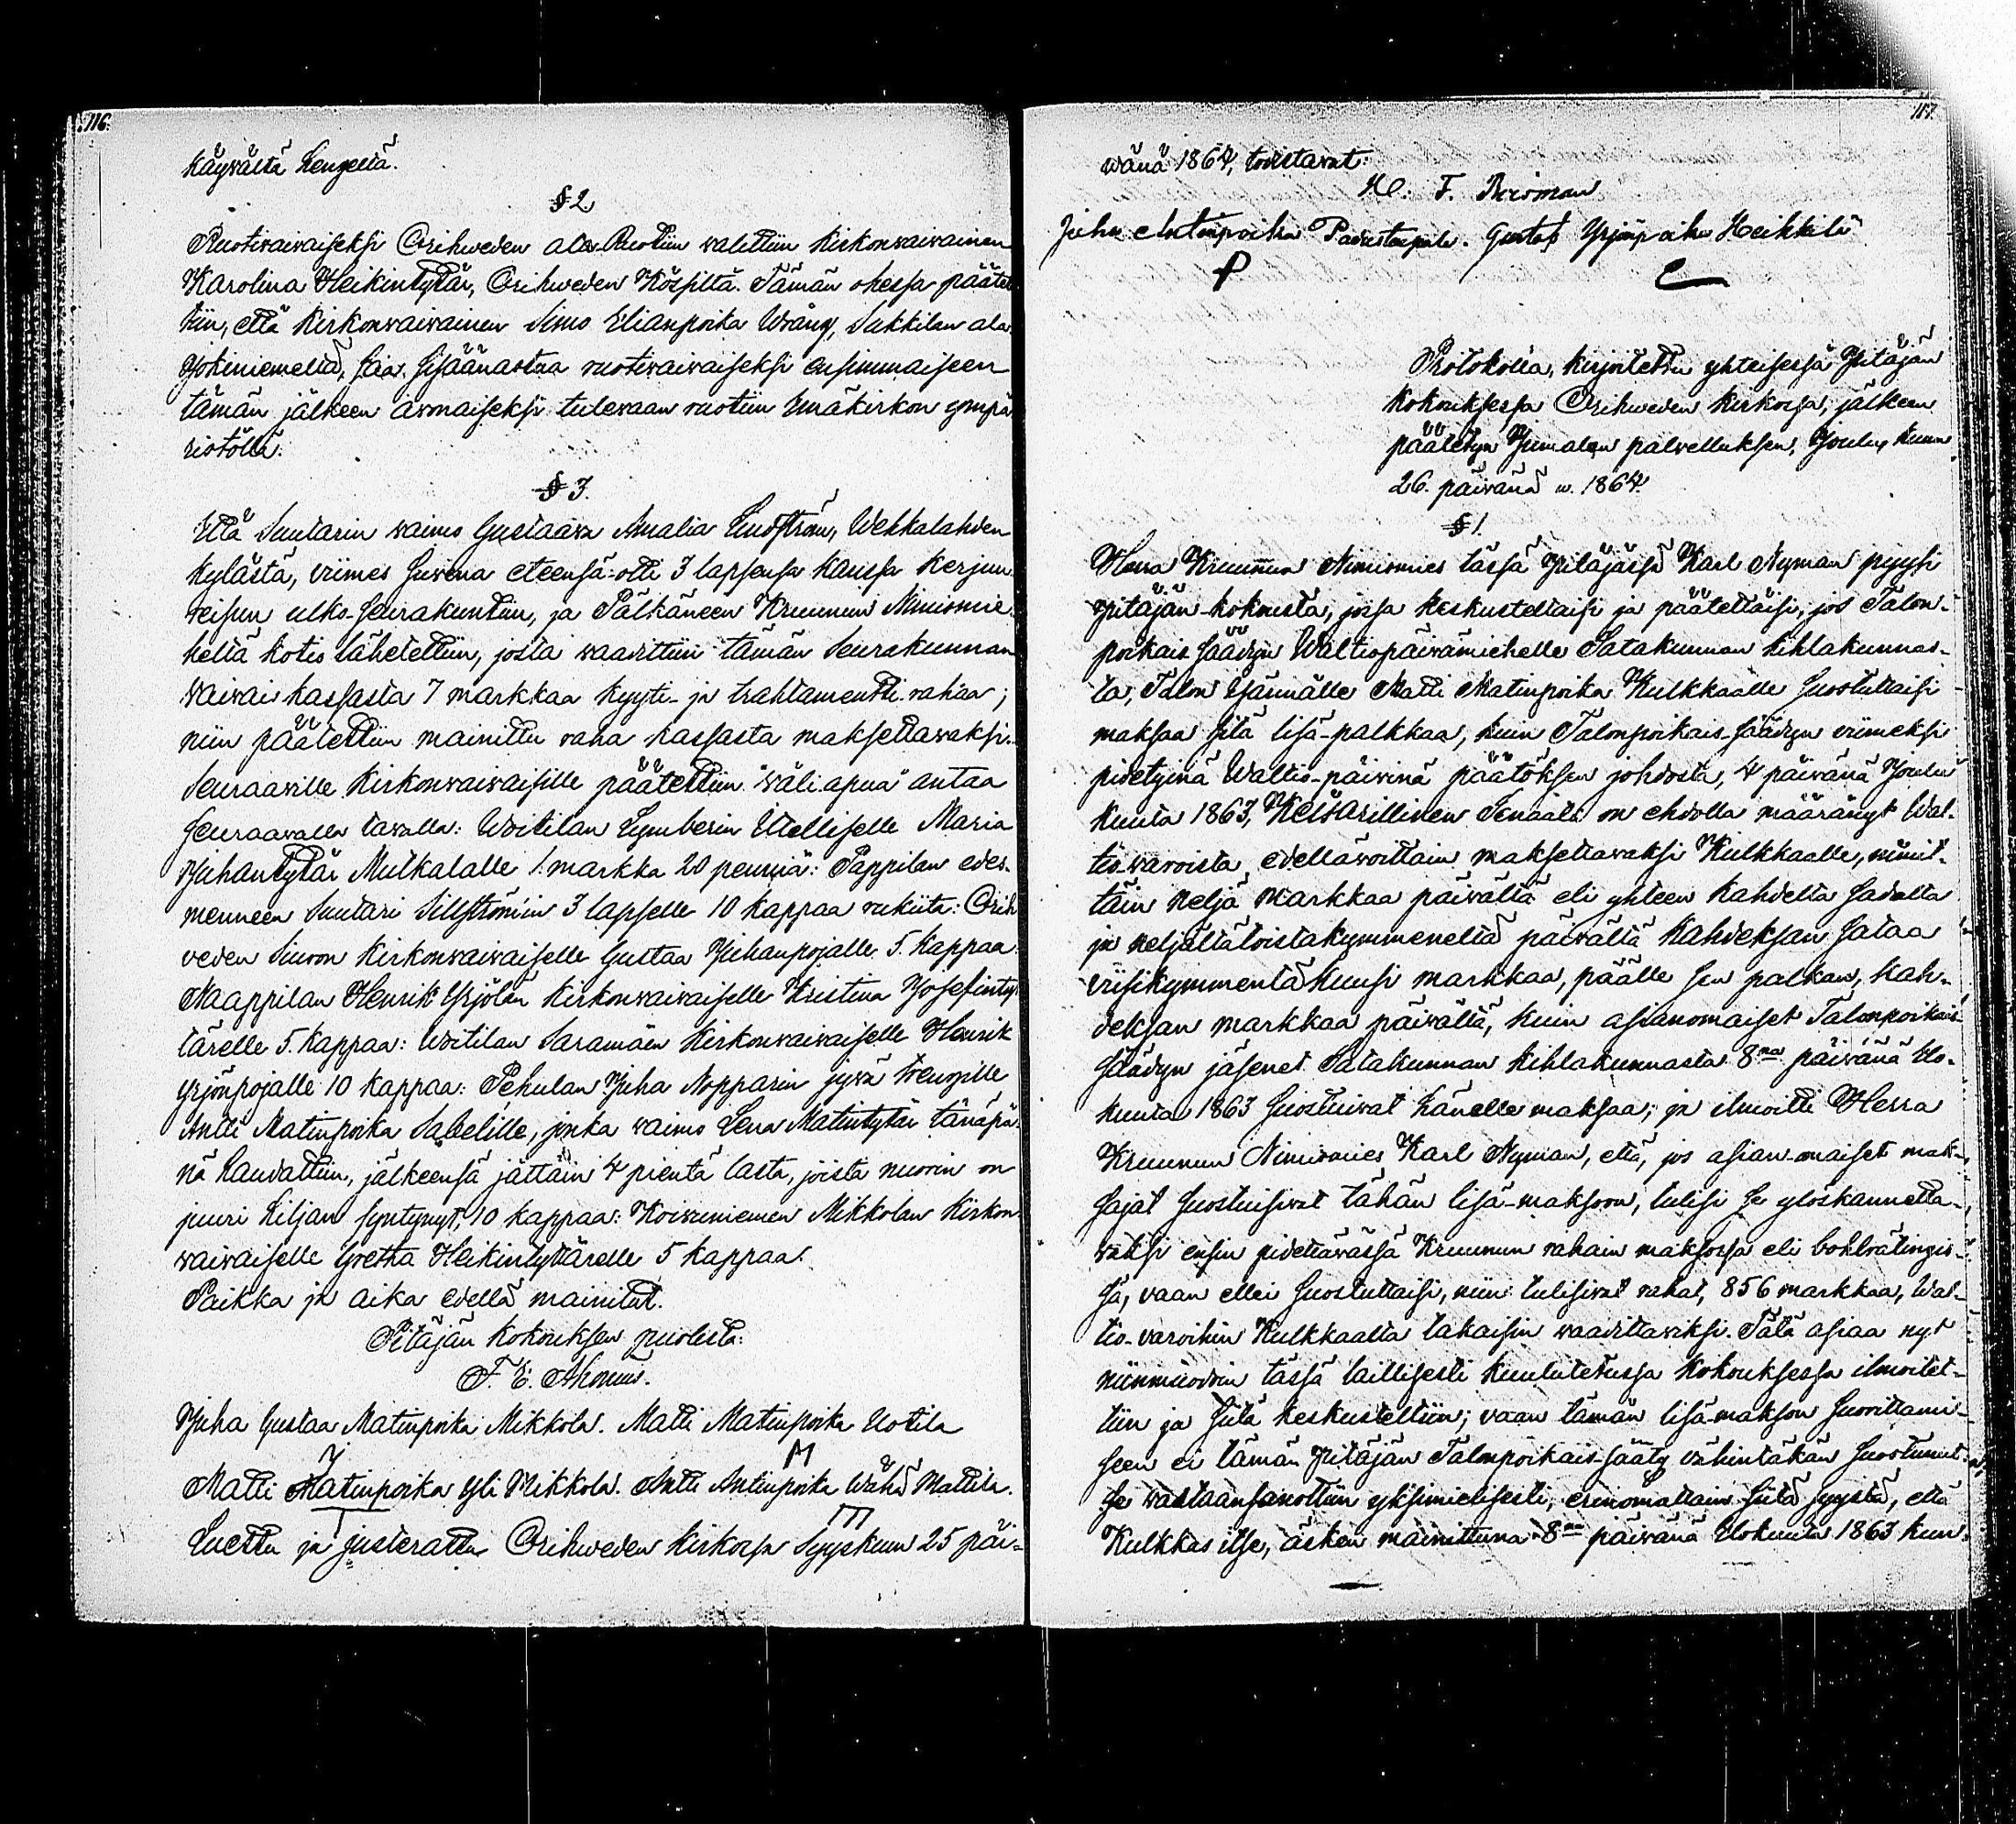 116.
käywältä hengeltä.
§ 2.
Ruotiwaiwaiseksi Oriweden ala Ruotiin walittiin kirkonwaiwainen
Karolina Heikintytär, Oriweden Kössiltä. Tämän ohessa päätet
tiin, että kirkonwaiwainen Simo Elianpoika Wräng, Sukkilan ala
Jokiniemeltä, saa sisäänastua ruotiwaiwaiseksi ensimmaiseen
tämän jälkeen awonaiseksi tulewaan ruotiin Emäkirkon ympä
ristöllä.
§ 3.
Että Suutarin waimo Gustaawa Amalia Lindström, Wehkalahden
kylästä, viimes suwena eteensä-otti 3 lapsensa kanssa kerjun
reisun ulko-seurakuntiin, ja Pälkäneen Kruunun Nimismie
heltä kotio lähetettiin, josta waadittiin tämän Seurakunnan
waiwais kassasta 7 markkaa kyyti- ja trahtamentti rahaa;
niin päätettiin mainittu raha kassasta maksettawaksi.
Seuraaville kirkonwaiwaisille päätettiin "wäli apua" antaa
seuraawalla tawalla: Woitilan Lymberin Itselliselle Maria
Juhantytär Mutkalalle 1 markka 20 penniä: Pappilan edes-
menneen Suutari Sillströmin 3 lapselle 10 kappaa rukiita: Orih
veden Siwon kirkonwaiwaiselle Gustaa Juhanpojalle 5 kappaa:
Naappilan Henrik Yrjölän kirkonwaiwaiselle Kristina Josefinty
tärelle 5 kappaa: Woitilan Saramäen kirkonwaiwaiselle Henrik
Yrjönpojalle 10 kappaa: Pehulan Juha Nopparin jywä trengille
Antti Matinpoika Sabelille, jonka waimo Lena Matintytär tänäpä
nä haudattiin, jälkeensä jättäin 4 pientä lasta, joista nuorin on
juuri äskjan syntynyt, 10 kappaa: Koiwuniemen Mikkolan kirkon
waiwaiselle Gretha Heikintyttärelle 5 kappaa.
Paikka ja aika edellä mainitut.
Pitäjän kokouksen puolesta:
F. E. Ahonius.
Juha Gustaa Matinpoika Mikkola. Matti Matinpoika Uotila
Matti Matinpoika Yli Mikkola. Antti Antinpoika Wähä Mattila.
Luettu ja justerattu Oriweden kirkossa Syyskuun 25 päi-
117.
wänä 1864, todistawat:
Juha Antinpoika Gustaf Yrjönpoika Heikkilä
Protokolla, kirjoitettu yhteisessä Pitäjän
kokouksessa Oriweden kirkossa, jälkeen
päätetyn Jumalan palvelluksen, Joulu kuun
26. päivänä w. 1864.
§ 1.
Herra Kruunun Nimismies tässä Pitäjässä Karl Nyman pyysi
Pitäjän-kokousta, jossa keskusteltaisi ja päätettäisi, jos Talon-
poikais säädyn Waltiopäivämiehelle Satakunnan kihlakunnas-
ta, Talon Isännälle Matti Matinpoika Kulkkaalle suostuttaisi
maksaa sitä lisä-palkkaa, kuin Talonpoikais-säädyn viimeksi
pidetyinä Waltio-päivinä päätöksen johdosta, 4 päivänä Joulu
kuuta 1863, Keisarillinen Senaati on ehdolla määrännyt Wal-
tio-waroista edelläwoittain maksettawaksi Kulkkaalle, nimit-
täin neljä markkaa päivältä eli yhteen kahdelta sadalta
ja neljältätoistakymmeneltä päivältä kahdeksan sataa
viisikymmentä kuusi markkaa, päälle sen palkan, kah-
deksan markkaa päivältä, kuin asianomaiset Talonpoikais-
säädyn jäsenet Satakunnan kihlakunnasta 8na päivänä Elo-
kuuta 1863 suostuivat hänelle maksaa; ja ilmoitti Herra
Kruunun Nimismies Karl Nyman, että, jos asian-omaiset mak-
sajat suostuisivat tähän lisä-maksoon, tulisi se ylöskannetta-
waksi ensin pidettäwässä Kruunun rahain maksossa eli boklrätingis-
sä, vaan ellei suostuttaisi, niin tulisivat rahat, 856 markkaa, Wal-
tio-varoihin Kulkkaalta takaisin waadittaviksi. Tätä asiaa nyt
niinmuodoin tässä laillisesti kuulutetussa kokouksessa ilmoitet-
tiin ja siitä keskusteltiin; vaan tämän lisä-makson suorittami-
seen ei tämän Pitäjän Talonpoikais-sääty vähintäkän suostunut.
Se wastaansanottiin yksimielisesti, erinomattain siitä syystä, että
Kulkkas itse, äsken mainittuna 8na päivänä Elokuuta 1863 kun-